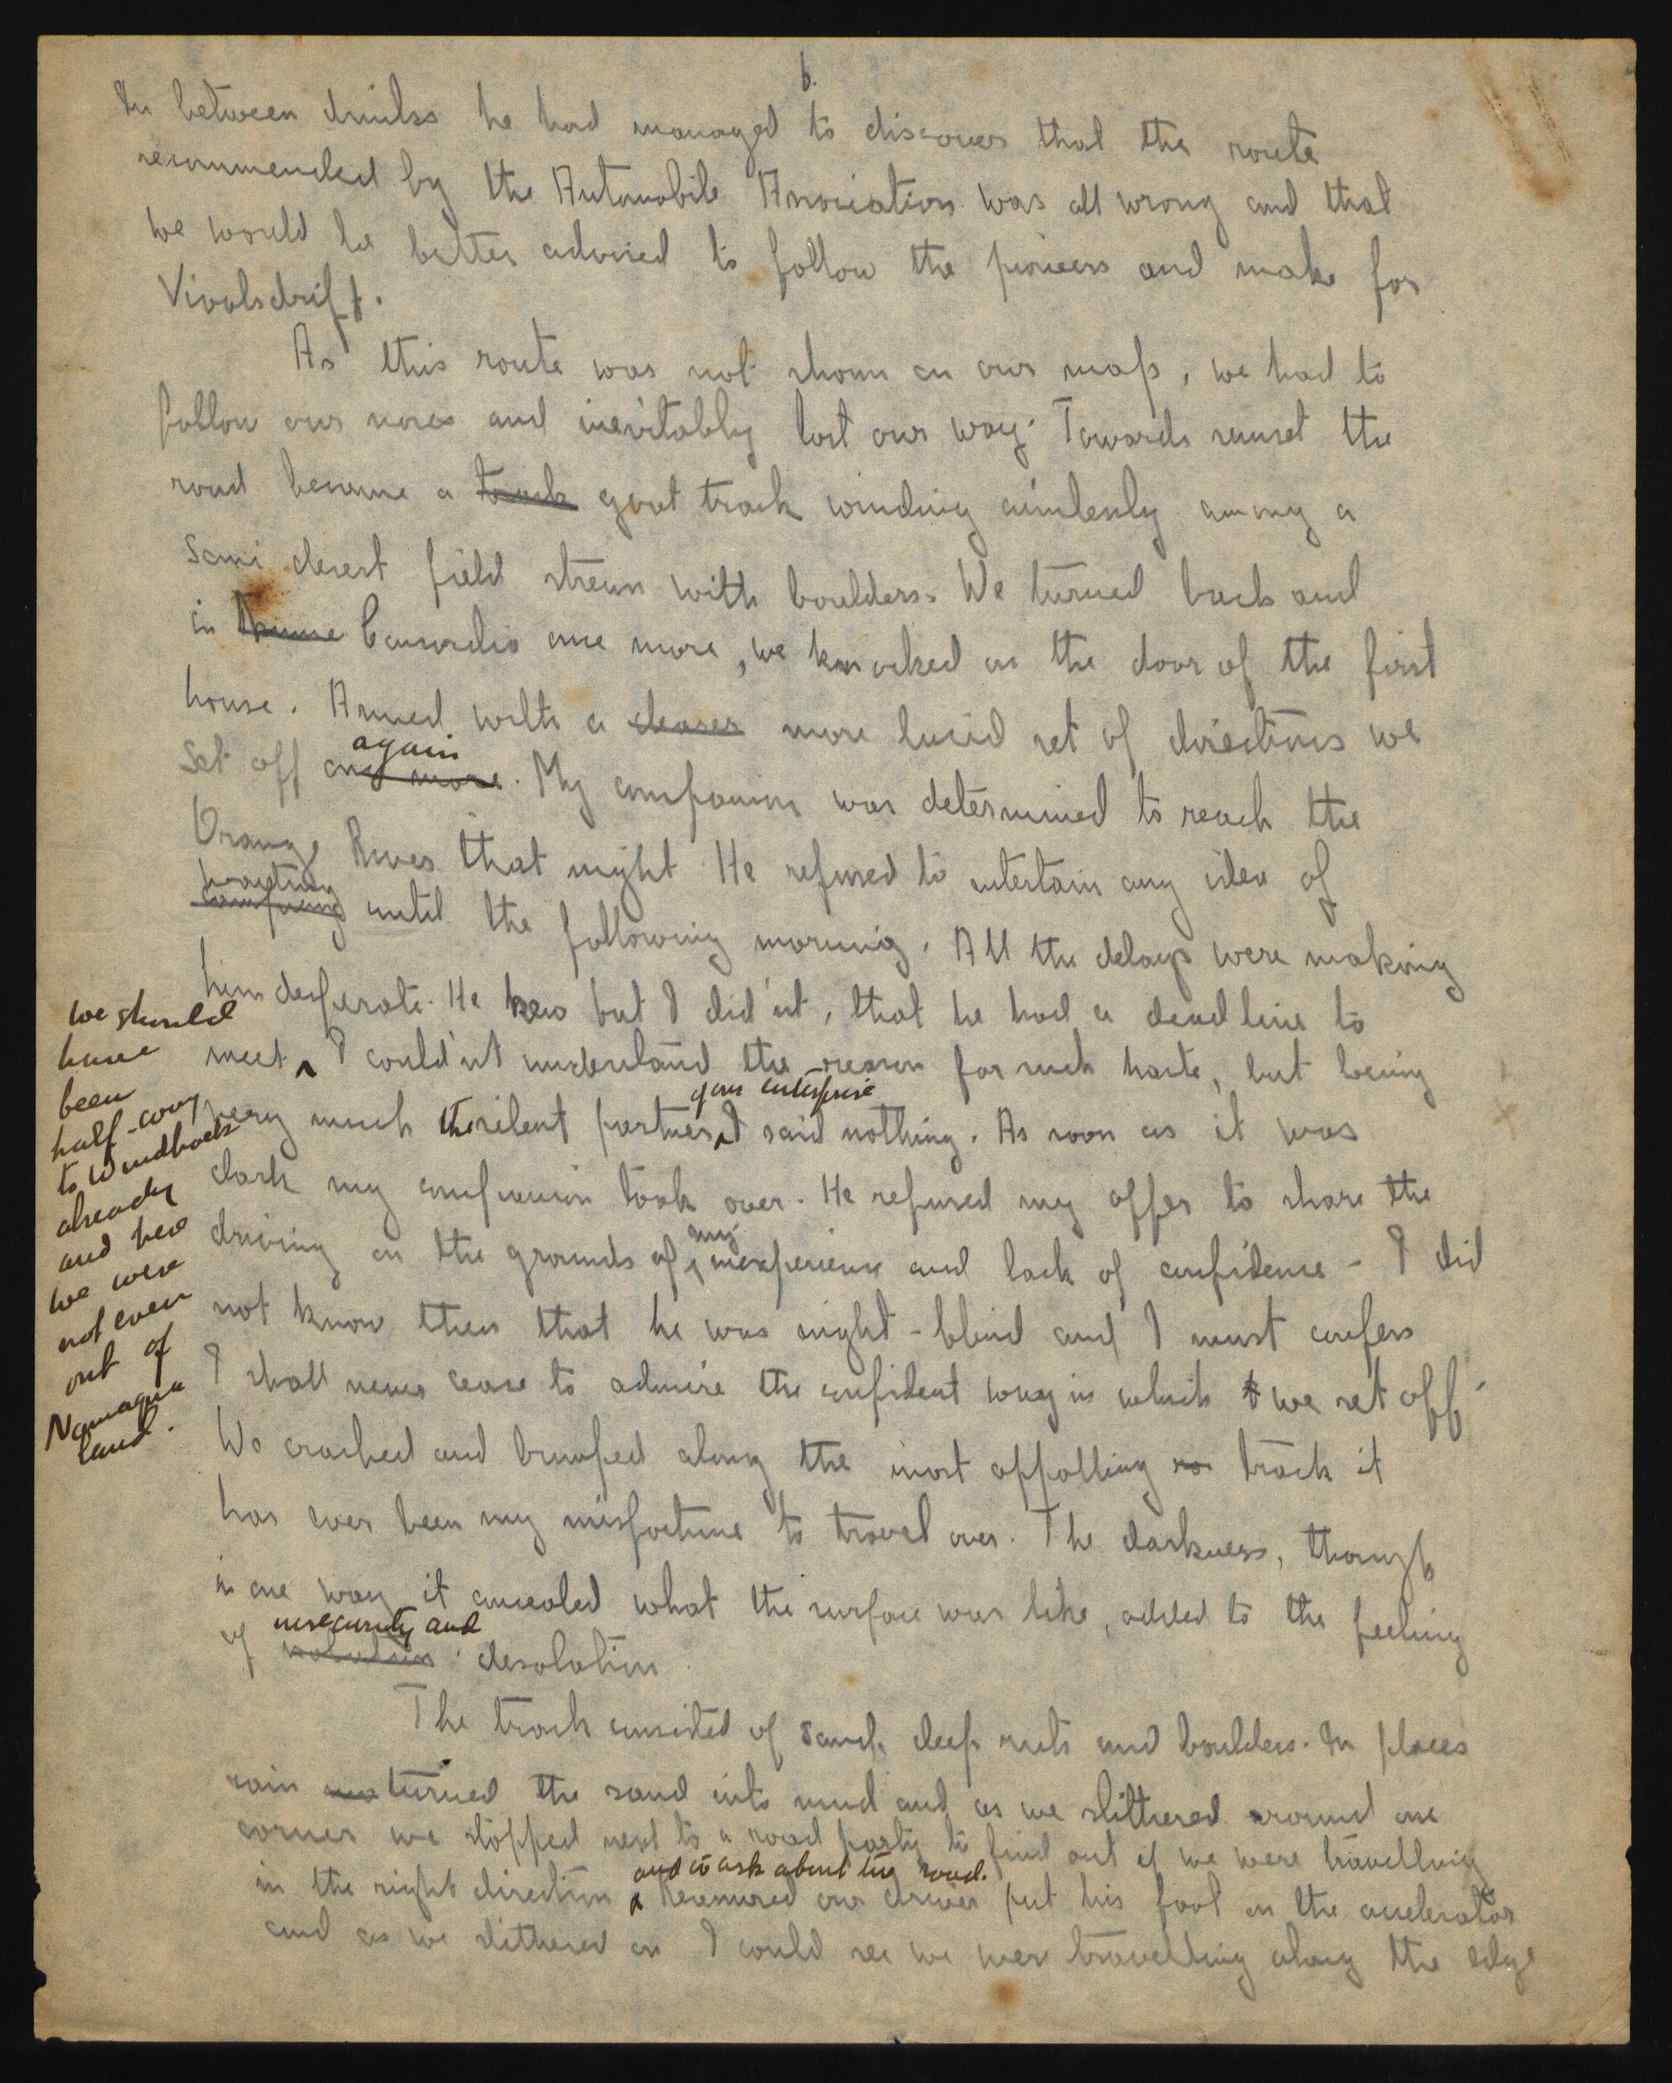 6.
In between drinks he had managed to discover that the route
recommended by the Automobile Association was all wrong and that
we would be better advised to follow the pioneers and make for
Vioolsdrift.
As this route was not shown on our map, we had to
follow our noses and inevitably lost our way. Towards sunset the
road became a track goat track winding aimlessly among a
semi desert field strewn with boulders. We turned back and
in Concordia once more, we knocked on the door of the first
house. Armed with a clearer more lucid set of directions we
again
set off once more. My companion was determined to reach the
Orange River that night. He refused to entertain any idea of
waiting
until the following morning. All the delays were making
him desperate. He knew but I did'nt, that he had a deadline to
meet ^ I could'nt understand the reason for such haste, but being
of our enterprise
very much the silent partner ^ I said nothing. As soon as it was
dark my companion took over. He refused my offer to share the
my
driving on the grounds of ^ inexperience and lack of confidence - I did
not know then that he was night-blind and I must confess
I shall never cease to admire the confident way in which we set off.
We crashed and bumped along the most appalling track it
has ever been my misfortune to travel over. The darkness, though
in one way it concealed what the surface was like, added to the feeling
insecurity and
of desolation.
The track consisted of sand, deep ruts and boulders. In places
rain turned the sand into mud and as we slithered around one
corner we stopped next to a road party to find out if we were travelling
and to ask about the road.
in the right direction ^ Reassured our driver put his foot on the accelerator
and as we slithered on I could see we were travelling along the edge
we should
have
been
half-way
to Windhoek
already
and here
we were
not even
out of
Namaqua
land.